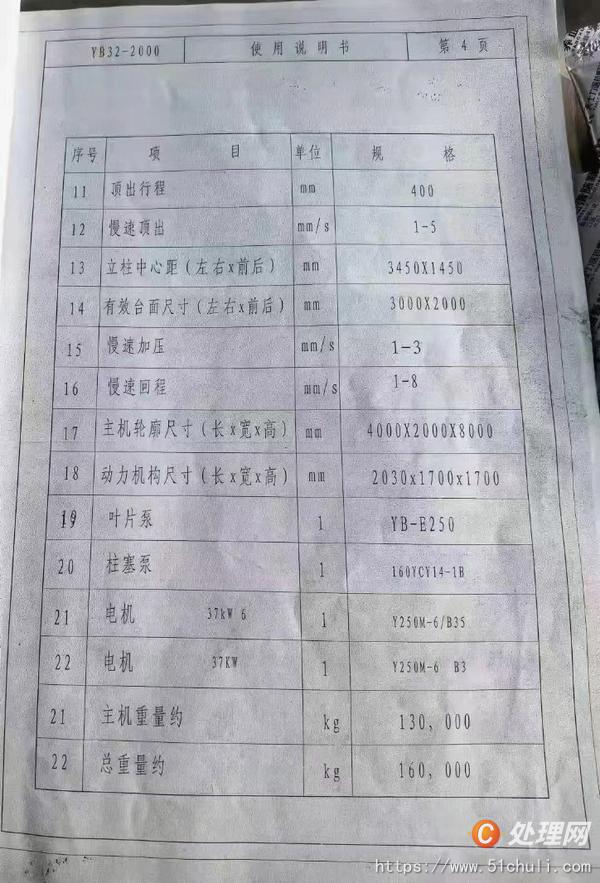 YB32-2000 使用说明书 第 4 页
序号 项 目 单位 规 格
11 顶出行程 mm 400
12 慢速顶出 mm/s 1-5
13 立柱中心距(左右x前后) mm 3450X1450
14 有效台面尺寸(左右x前后) mm 3000X2000
15 慢速加压 mm/s 1-3
16 慢速回程 mm/s 1-8
17 主机轮廓尺寸(长x宽x高) mm 4000X2000X8000
18 动力机构尺寸(长x宽x高) mm 2030x1700x1700
19 叶片泵 1 YB-E250
20 柱塞泵 1 160YCY14-1B
21 电机 37kW 6 1 Y250M-6/B35
22 电机 37KW 1 Y250M-6 B3
21 主机重量约 kg 130,000
22 总重量约 kg 160,000
C 处理网
https://www.51chuli.com